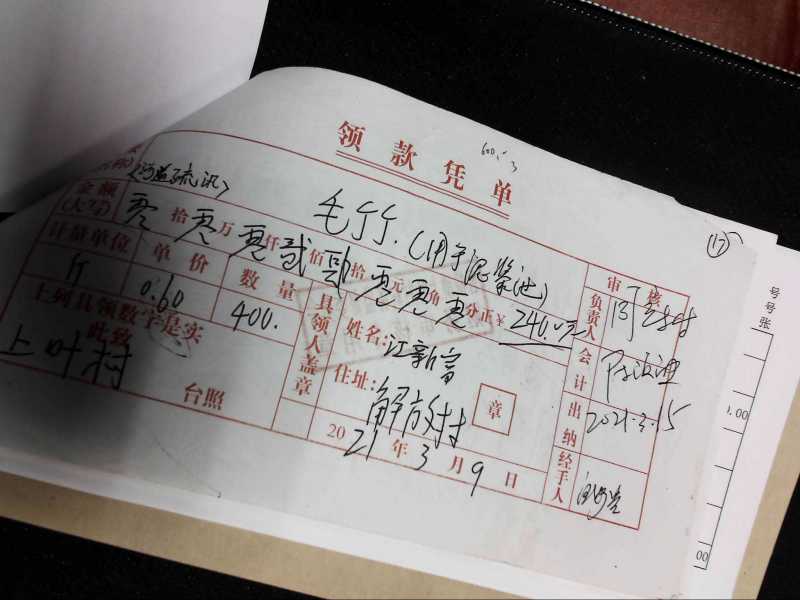 领款凭单
毛竹.(用于泥浆池)
金额(大写) 零拾零万零仟贰佰肆拾零元零角零分正¥240.0元
计量单位 单价 数量
斤 0.60 400.
上列具领数字是实
此致
上叶村
台照
具领人盖章
姓名:江新富
住址:解放村
章
2021年3月9日
审核
负责人
会计
出纳 2021.3.15
经手人
(17)
号
号
张
1.00
00